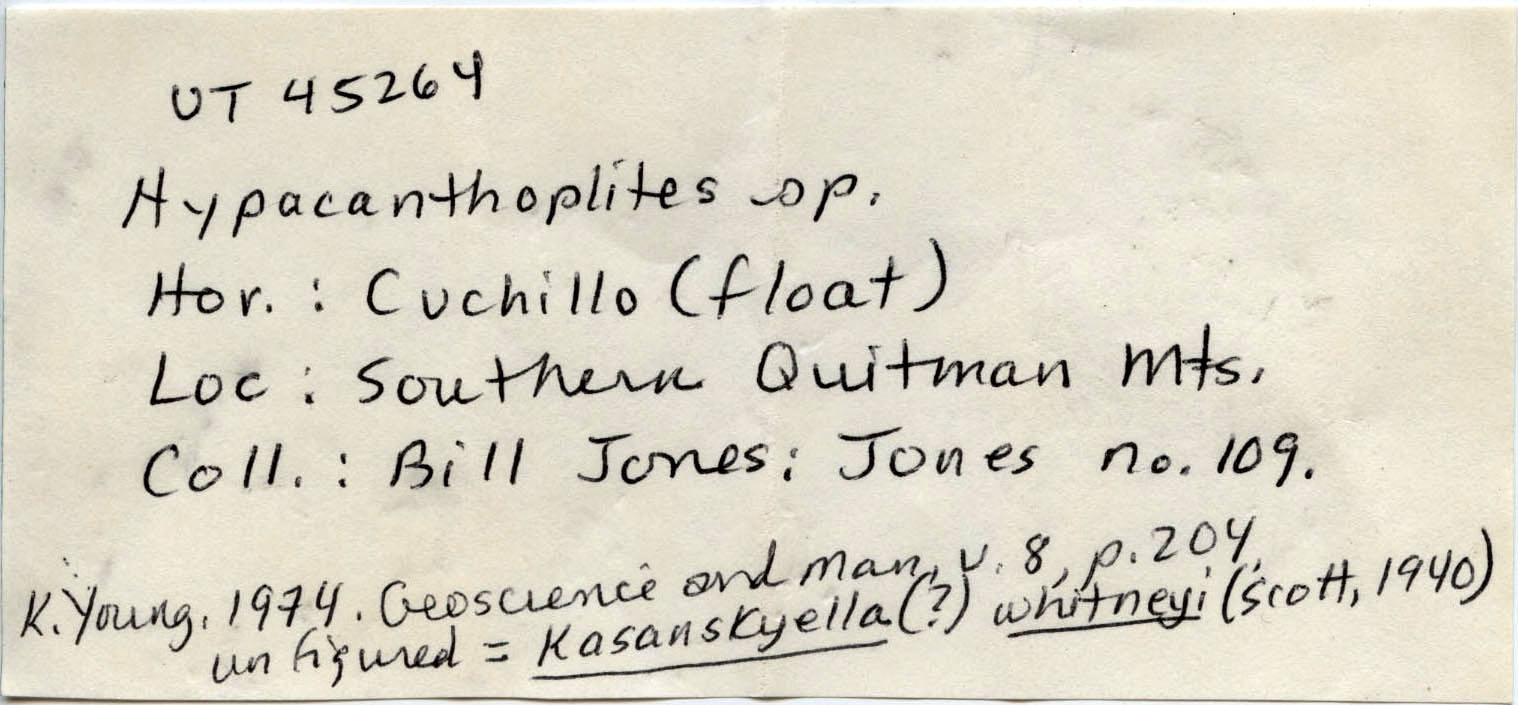 UT 45264
Hypacanthoplites sp.
Hor. : Cuchillo (float)
Loc : Southern Quitman Mts.
Coll. : Bill Jones; Jones no. 109.
K. Young, 1974. Geoscience and Man, v. 8, p. 204,
unfigured = Kasanskyella (?) whitneyi (Scott, 1940)